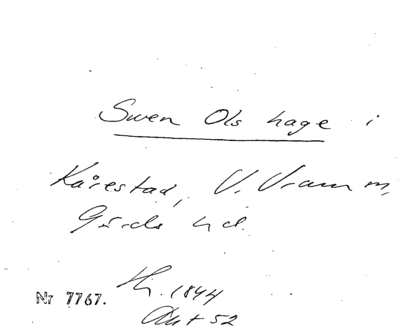 Swen Ols hage i
Kårestad, V. Vram m,
Gärds hd.
Nr 7767.
Hl. 1844
Akt 52